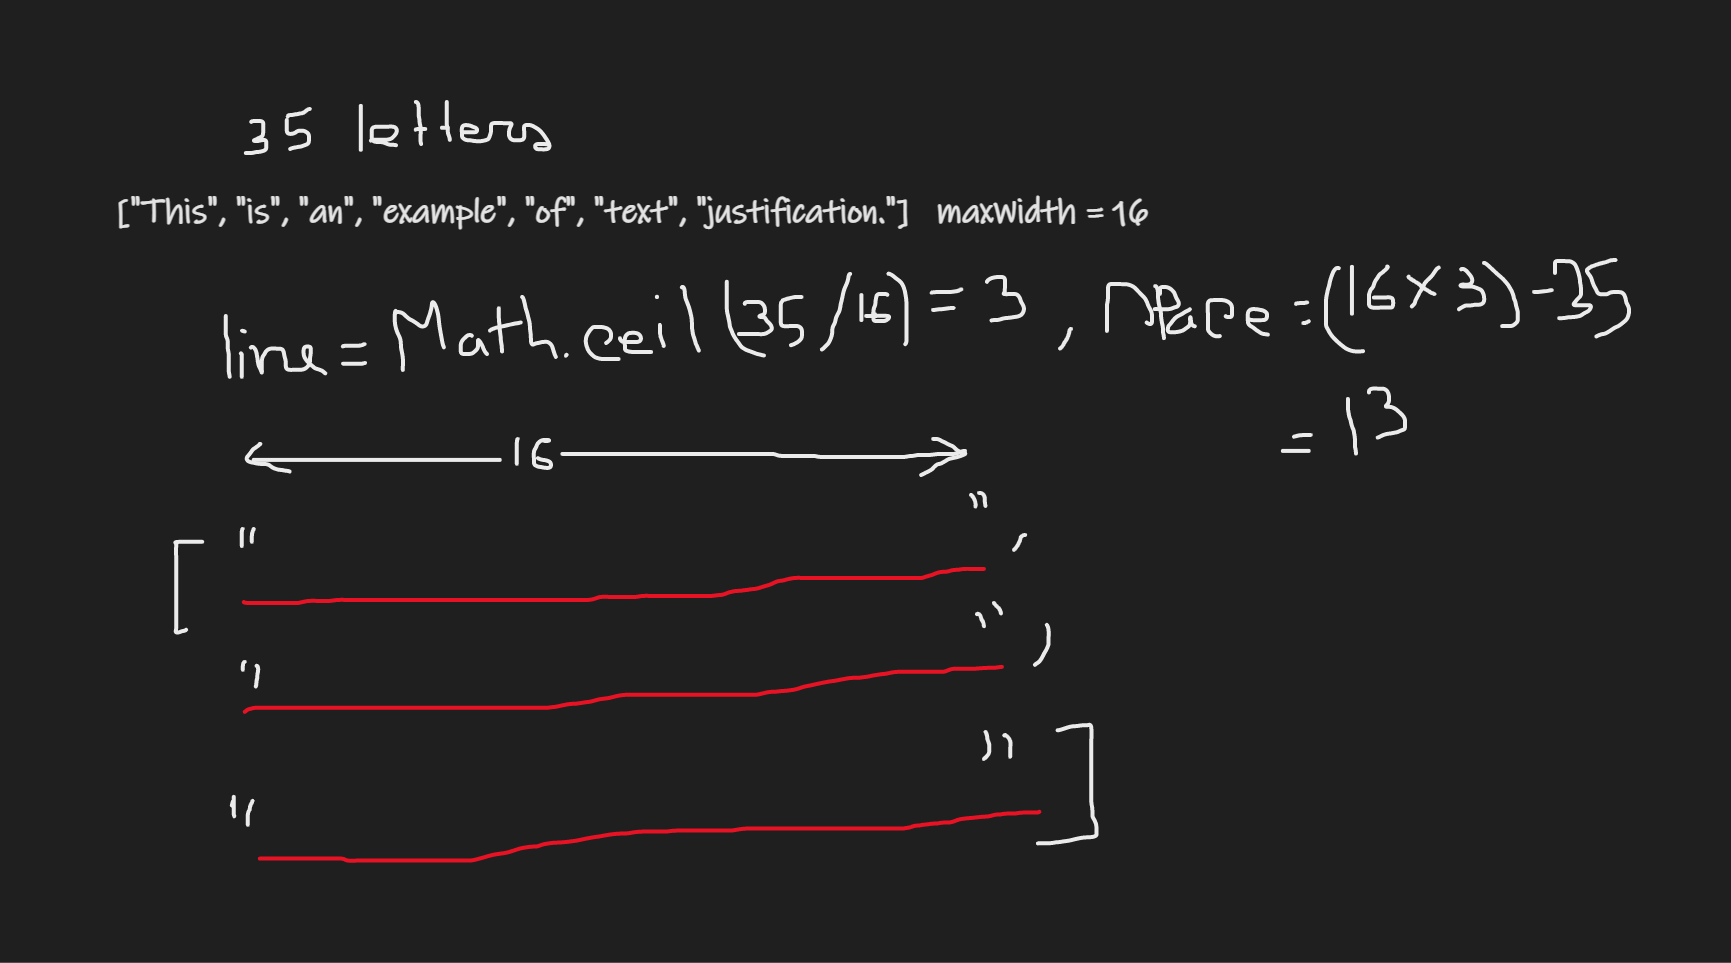 35 letters
["This", "is", "an", "example", "of", "text", "justification."] maxWidth = 16
line = Math.ceil (35 /16) = 3 , space = (16 x 3) - 35
= 13
16
[ " ",
" ",
" " ]